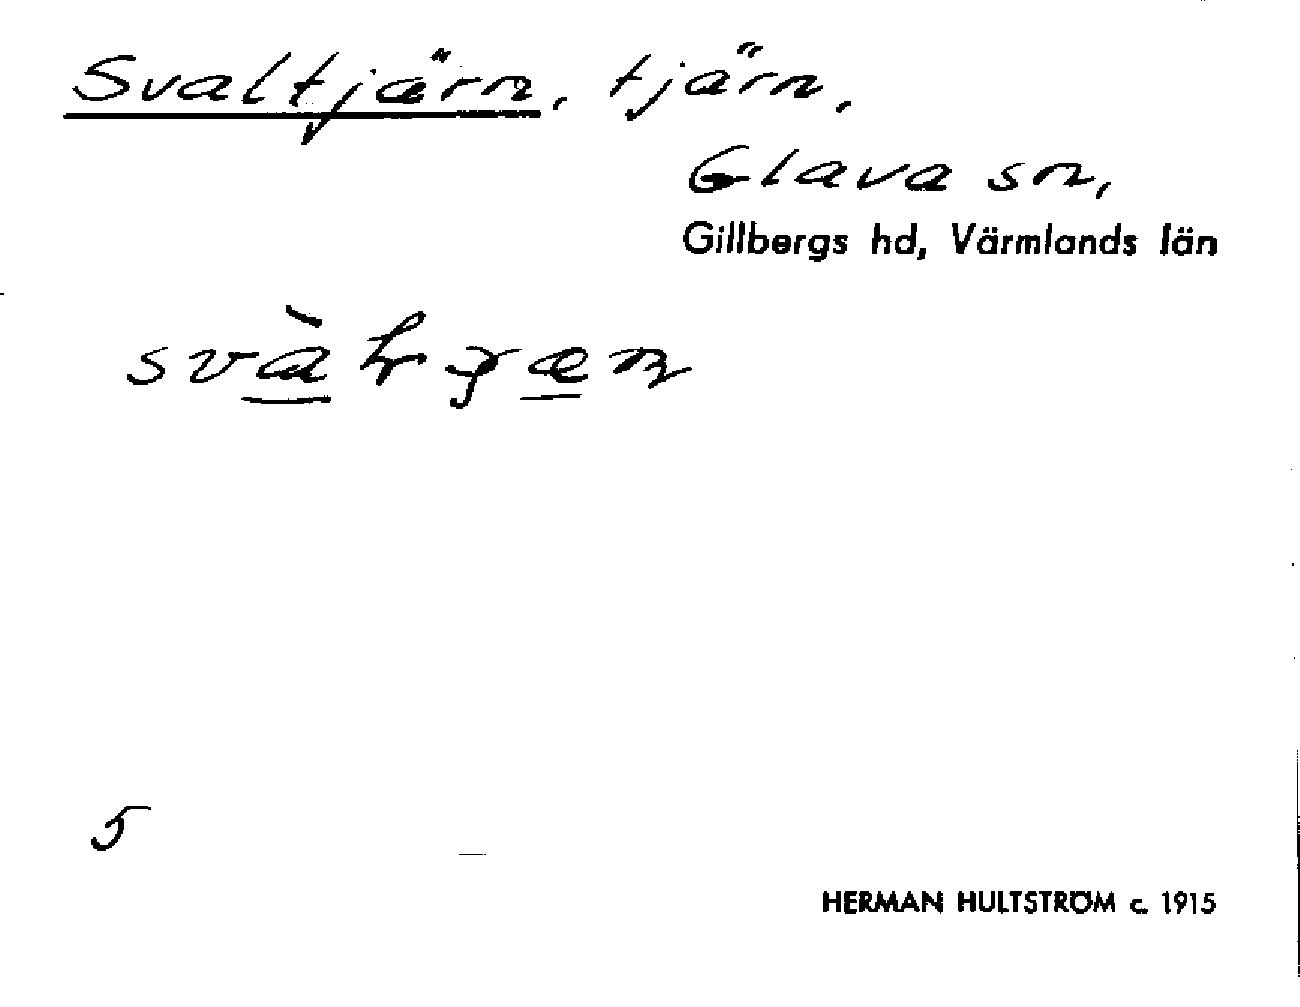 Svaltjärn, tjärn,
Glava sn,
Gillbergs hd, Värmlands län
5
HERMAN HULTSTRÖM c. 1915